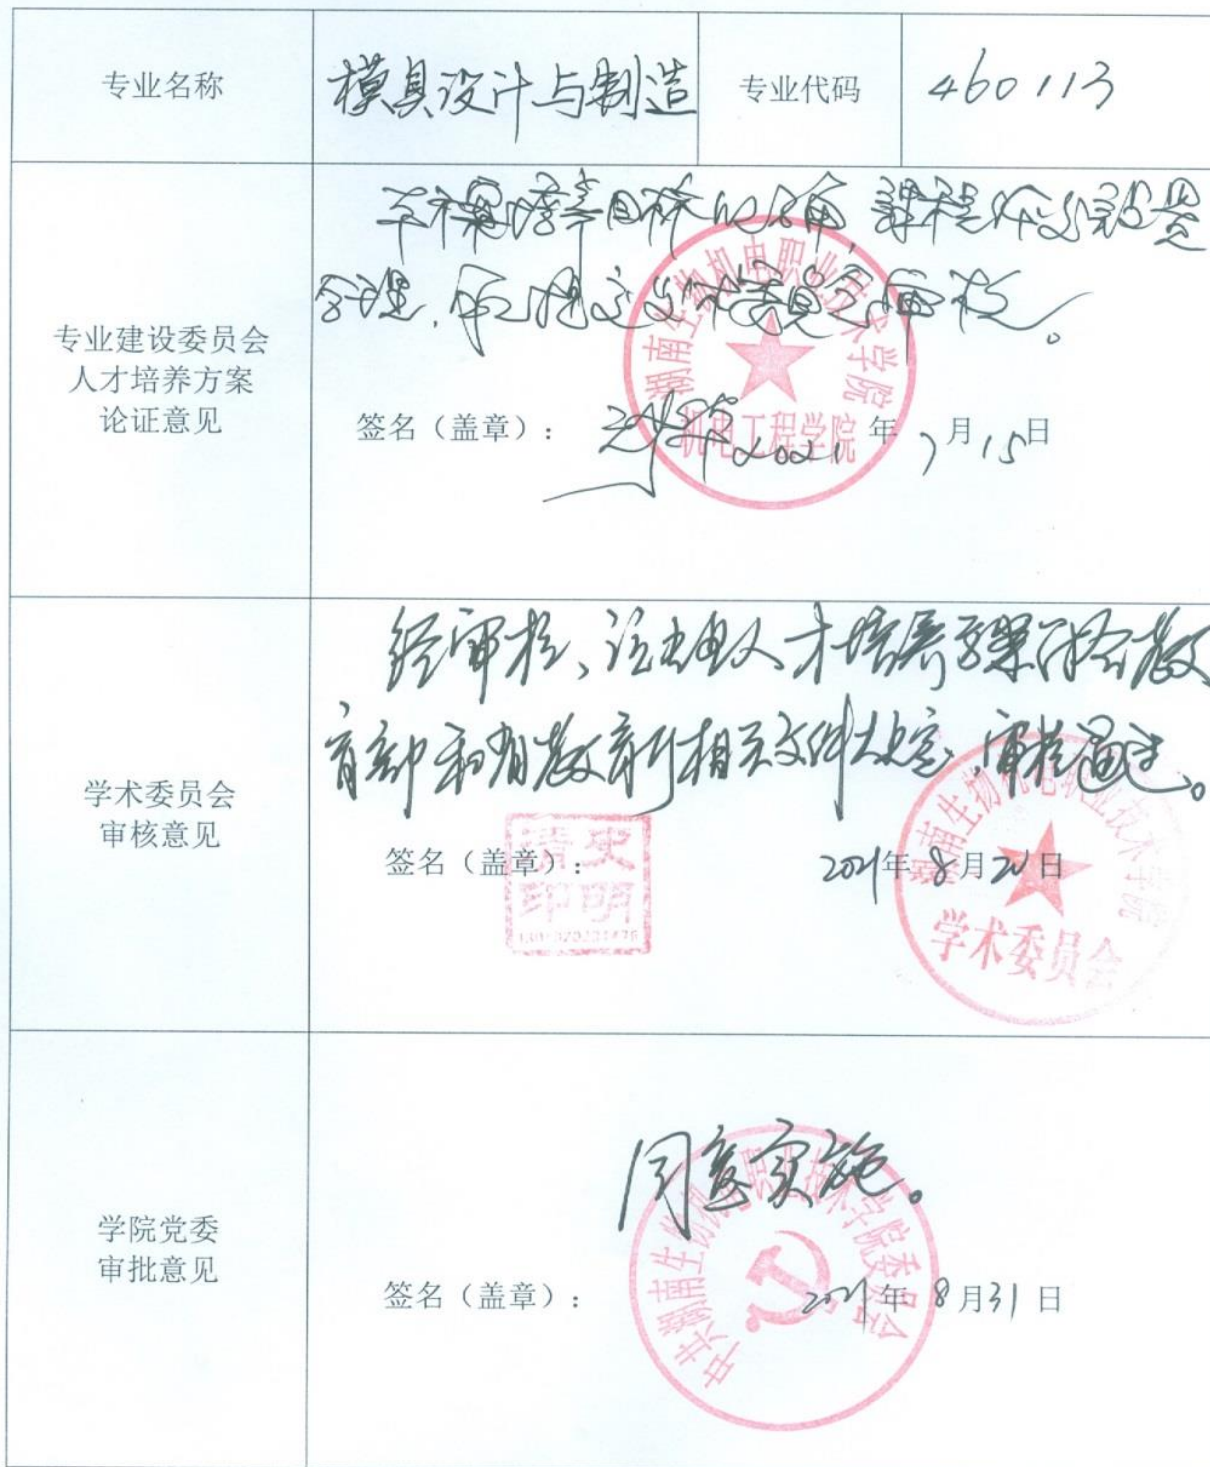 专业名称
模具设计与制造
专业代码
460113
专业建设委员会
人才培养方案
论证意见
培养目标明确,课程体系设置
合理,可提交学术委员会审核。
湖南生物机电职业技术学院
机电工程学院
签名(盖章):
2021年7月15日
学术委员会
审核意见
经审核、该专业人才培养方案符合教
育部和省教育厅相关文件规定,审核通过。
签名(盖章):
史明清印
2021年8月21日
湖南生物机电职业技术学院
学术委员会
学院党委
审批意见
同意实施。
签名(盖章):
2021年8月31日
中共湖南生物机电职业技术学院委员会